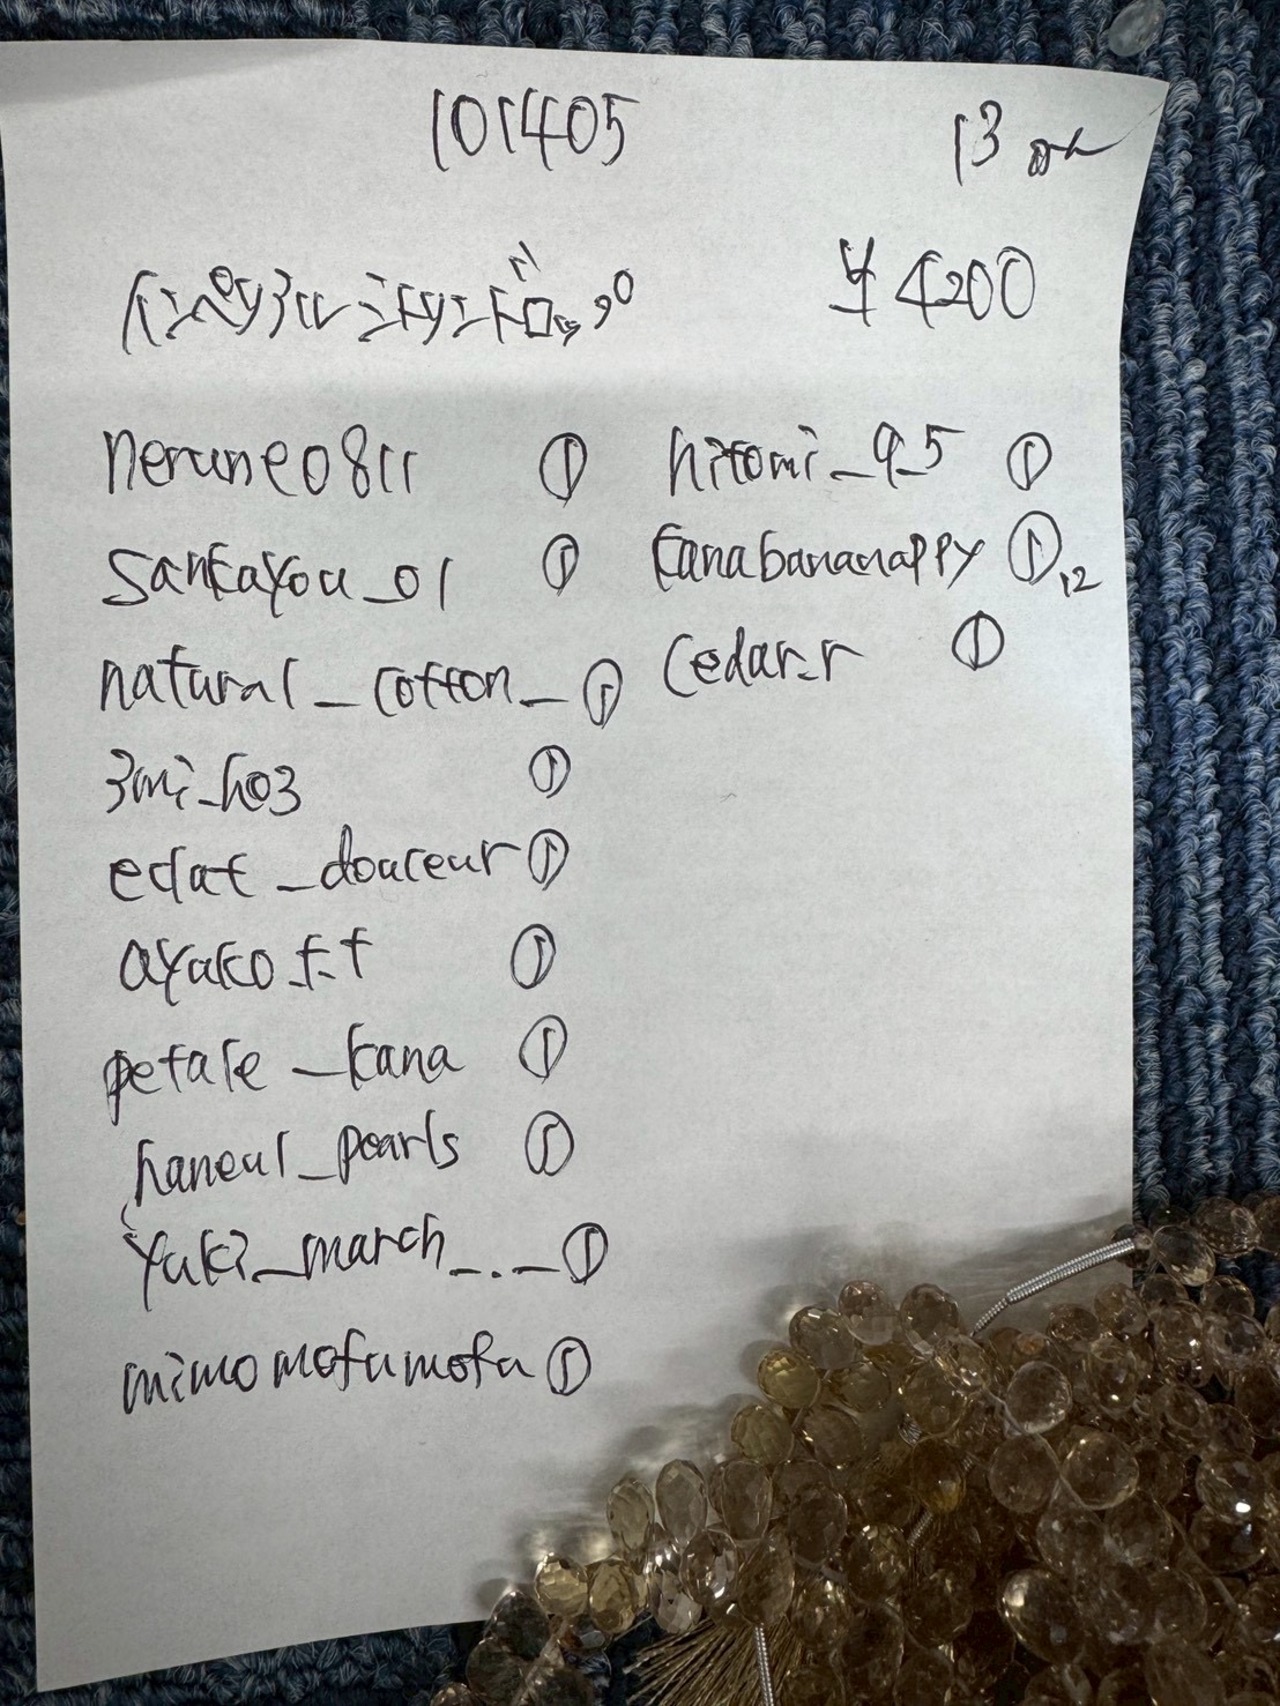 101405
13 ok
インペリアルシャンドロップ
¥4200
nerune0811 ①
sankayou_01 ①
natural_cotton_ ①
3mi_ho3 ①
eclat_douceur ①
ayako_t.t ①
petale_kana ①
haneul_pearls ①
yuki_march_._ ①
mimomofumofu ①
hitomi_9_5 ①
kanabananappy ① 12
cedar_r ①